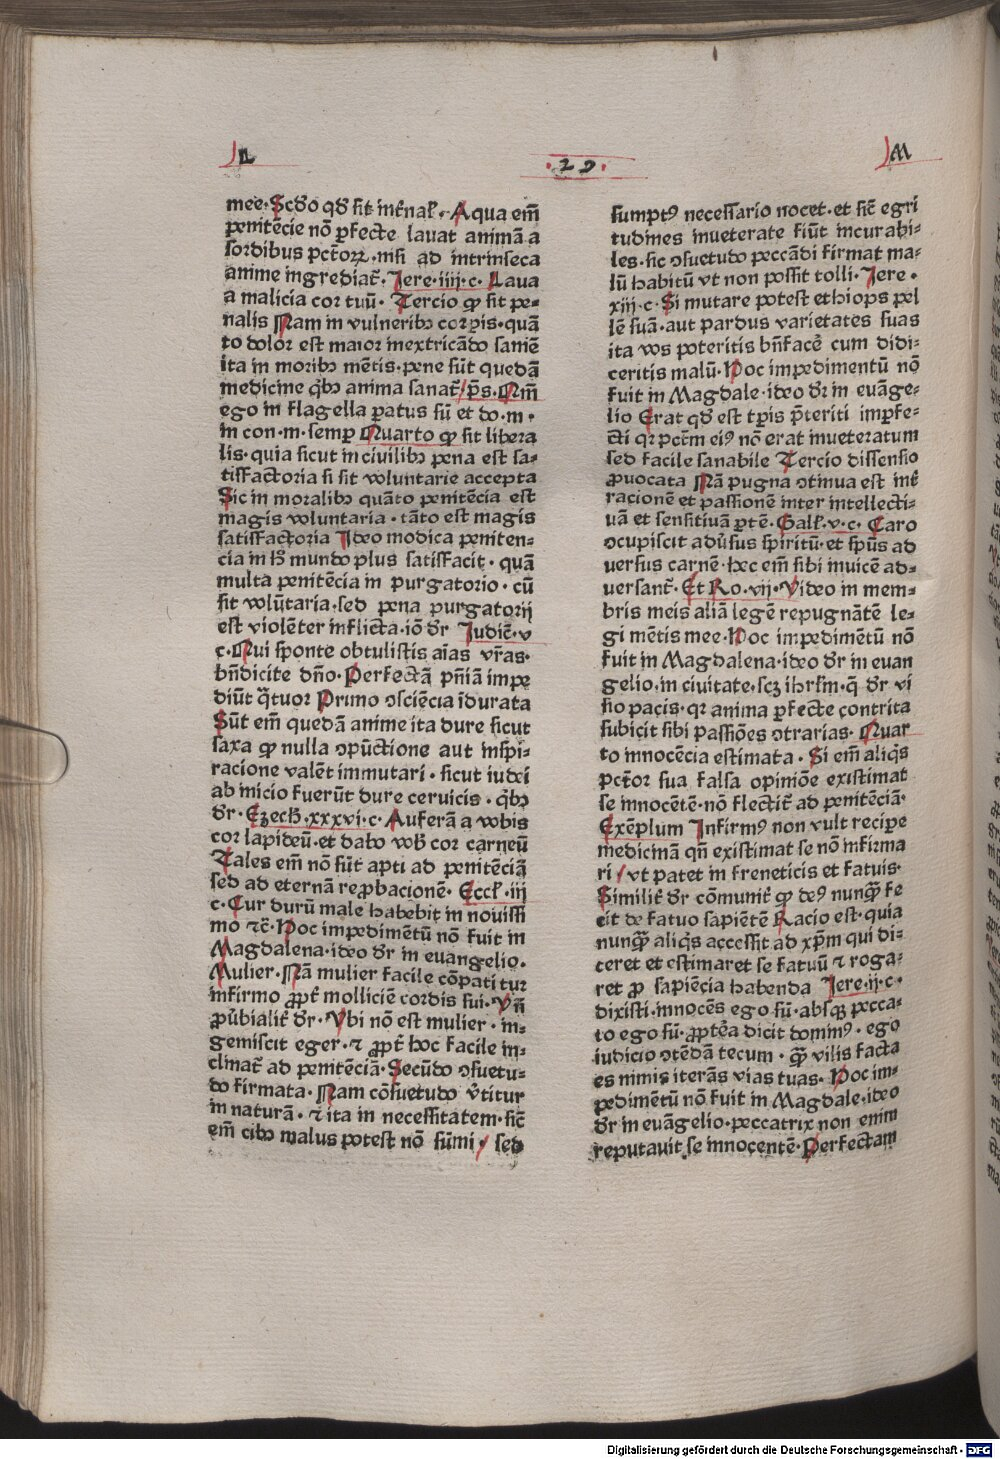 L
·29·
M
mee· Scd̄o qd̄ sit int̄nal̄·· Aqua em̄
penitēcie nō ꝑfecte lauat animā a
sordibus pct̄oꝝ·nisi ad intrinseca
anime ingrediat̄· Jere·iiij·c· Laua
a malicia cor tuū· Tercio ꝙ sit pe-
nalis Nam in vulneribꝫ corꝑis·quā
to dolor est maior inextricādo saniē
ita in moribꝫ mētis·pene sūt quedā
medicine qͥbꝫ anima sanat̄/p̄s·Qm̄
ego in flagella ꝑatus sū et do·m·
in con·m·semꝑ Quarto ꝙ sit libera
lis·quia sicut in ciuilibꝫ pena est sa-
tisfactoria si sit voluntarie accepta
Sic in moralibꝫ quāto penitēcia est
magis voluntaria·tāto est magis
satisfactoria Ideo modica peniten-
cia in h̄ mundo plus satisfacit·quā
multa penitēcia in purgatorio·cū
sit volūtaria·sed pena purgatorij
est violēter inflicta·iō dr̄ Judic̄·v
c·Qui sponte obtulistis aīas vr̄as·
bn̄dicite dn̄o·Perfectā pn̄iā impe
diūt q̄tuor Primo ꝯsciēcia īdurata
Sūt em̄ quedā anime ita dure sicut
saxa ꝙ nulla ꝯpūctione aut inspi-
racione valēt immutari·sicut iudei
ab inicio fuerūt dure ceruicis·qͥbꝫ
dr̄·Ezech̄·xxxvi·c·Auferā a vobis
cor lapideū·et dabo vob̄ cor carneū
Tales em̄ nō sūt apti ad penitēciā
sed ad eternā reꝓbacionē·Eccl̄·iij
c·Cur durū male habebit in nouissi
mo ⁊c̄·Hoc impedimētū nō fuit in
Magdalena·ideo dr̄ in euangelio·
Mulier·Nā mulier facile cōpatitur
infirmo ꝓpt̄ molliciē cordis sui·Vn̄
ꝓūbialit̄ dr̄·Vbi nō est mulier·in-
gemiscit eger·⁊ ꝓpt̄ hoc facile in-
clinat̄ ad penitēciā·Secūdo ꝯsuetu-
do firmata·Nam cōsuetudo v̄titur
in naturā·⁊ ita in necessitatem·sic̄
em̄ cibꝰ malus potest nō sūmi·/ sed
sumptꝰ necessario nocet·et sic̄ egri
tudines inueterate fiūt incurabi-
les·sic ꝯsuetudo peccādi firmat ma-
lū habitū vt non possit tolli·Jere·
xiij·c·Si mutare potest ethiops pel
lē suā·aut pardus varietates suas
ita vos poteritis bn̄facē cum didi-
ceritis malū·Hoc impedimentū nō
fuit in Magdale·ideo dr̄ in euāge-
lio Erat qd̄ est tp̄is p̄teriti imꝑfe-
cti qꝛ pct̄m eiꝰ nō erat inueteratum
sed facile sanabile Tercio dissensio
ꝓuocata Nā pugna ꝯtinua est int̄
racionē et passionē inter intellecti-
uā et sensitiuā ꝑtē·Gall̄·v·c·Caro
ꝯcupiscit adūsus spiritū·et spūs ad
uersus carnē·hec em̄ sibi inuicē ad-
uersant̄·Et Ro·vij·Video in mem-
bris meis aliā legē repugnātē le-
gi mētis mee·Hoc impedimētū nō
fuit in Magdalena·ideo dr̄ in euan
gelio·in ciuitate·scꝫ ihrl̄m·q̄ dr̄ vi
sio pacis·qꝛ anima ꝑfecte contrita
subicit sibi passiōes ꝯtrarias·Quar
to innocēcia estimata·Si em̄ aliqͥs
pct̄or sua falsa opiniōe existimat
se innocētē·nō flectit̄ ad penitēciā·
Exēplum Infirmꝰ non vult recipe
medicinā qn̄ existimat se nō infirma
ri / vt patet in freneticis et fatuis·
Similit̄ dr̄ cōmunit̄ ꝙ deꝰ nunqͣꝫ fe
cit de fatuo sapiētē Racio est·quia
nunqͣꝫ aliqͥs accessit ad xp̄m qui di-
ceret et estimaret se fatuū ⁊ roga-
ret ꝓ sapiēcia habenda Jere·ij·c·
dixisti·innocēs ego sū·absqꝫ pecca-
to ego sū·ꝓpt̄ea dicit dominꝰ·ego
iudicio ꝯtēdā tecum·qͣꝫ vilis facta
es nimis iterās vias tuas·Hoc im-
pedimētū nō fuit in Magdale·ideo
dr̄ in euāgelio·peccatrix non enim
reputauit se innocentē·Perfectam
Digitalisierung gefördert durch die Deutsche Forschungsgemeinschaft · DFG